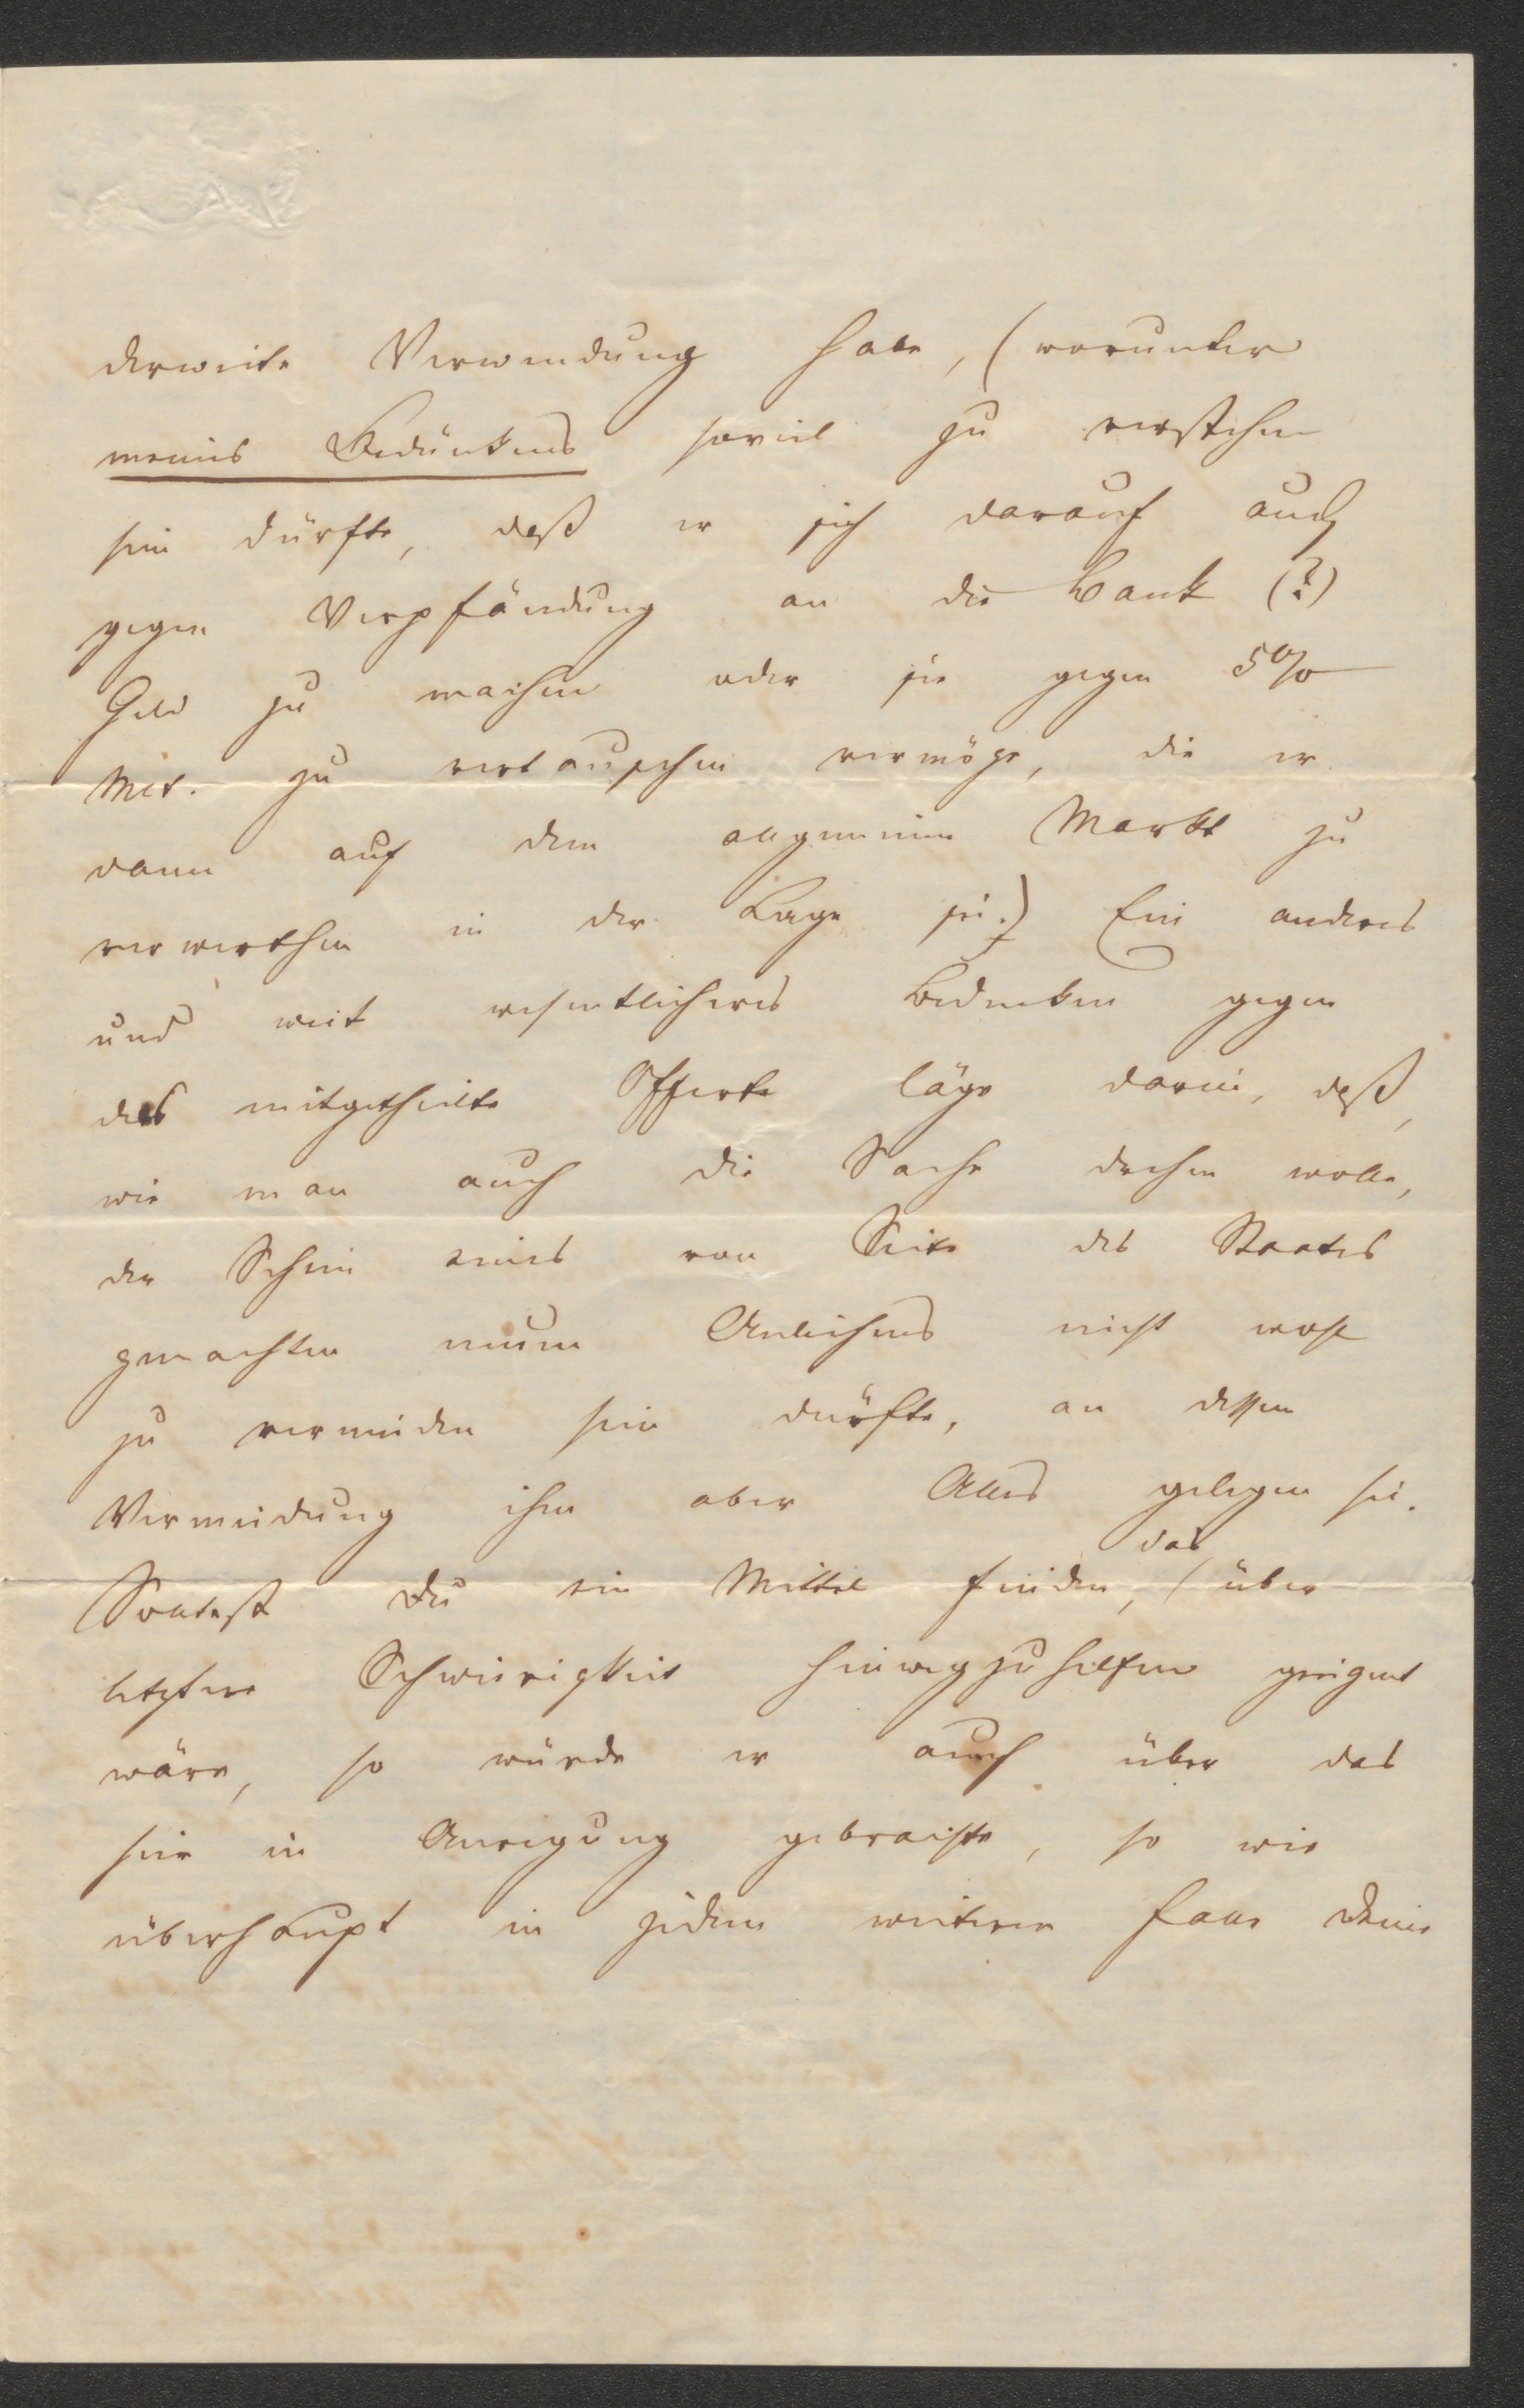 derweite Verwendung habe, (worunter
meines Bedünkens soviel zu verstehen
sein dürfte, daß er sich darauf auch
gegen Verpfändung an die Bank (?)
Geld zu machen oder sie gegen 5%
Met. zu vertauschen vermöge, die er
dann auf dem allgemeinen Markt zu
verwerthen in der Lage sei.) Ein anderes
und weit wesentlicheres Bedenken gegen
das mitgetheilte Offerte läge darin, daß,
wie man auch die Sache drehen wolle,
der Schein eines von Seite des Staates
gemachten neuen Anleihens nicht wohl
zu vermeiden sein dürfte, an dessen
Vermeidung ihm aber Alles gelegen sei.
Solltest Du ein Mittel finden, das über
letztere Schwierigkeit hinwegzuhelfen geeignet
wäre, so würde er auch über das
hier in Anregung gebrachte, so wie
überhaupt in jedem weiteren Falle Deine